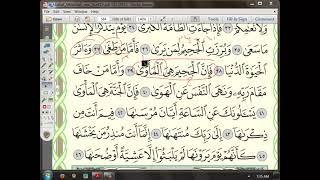 584
140%
وَلِأَنْعَٰمِكُمْ ٣٣ فَإِذَا جَآءَتِ ٱلطَّآمَّةُ ٱلْكُبْرَىٰ ٣٤ يَوْمَ يَتَذَكَّرُ ٱلْإِنسَٰنُ
مَا سَعَىٰ ٣٥ وَبُرِّزَتِ ٱلْجَحِيمُ لِمَن يَرَىٰ ٣٦ فَأَمَّا مَن طَغَىٰ ٣٧ وَءَاثَرَ
ٱلْحَيَوٰةَ ٱلدُّنْيَا ٣٨ فَإِنَّ ٱلْجَحِيمَ هِىَ ٱلْمَأْوَىٰ ٣٩ وَأَمَّا مَنْ خَافَ
مَقَامَ رَبِّهِۦ وَنَهَى ٱلنَّفْسَ عَنِ ٱلْهَوَىٰ ٤٠ فَإِنَّ ٱلْجَنَّةَ هِىَ ٱلْمَأْوَىٰ
٤١ يَسْـَٔلُونَكَ عَنِ ٱلسَّاعَةِ أَيَّانَ مُرْسَىٰهَا ٤٢ فِيمَ أَنتَ مِن
ذِكْرَىٰهَآ ٤٣ إِلَىٰ رَبِّكَ مُنتَهَىٰهَآ ٤٤ إِنَّمَآ أَنتَ مُنذِرُ مَن يَخْشَىٰهَا
٤٥ كَأَنَّهُمْ يَوْمَ يَرَوْنَهَا لَمْ يَلْبَثُوٓا۟ إِلَّا عَشِيَّةً أَوْ ضُحَىٰهَا ٤٦